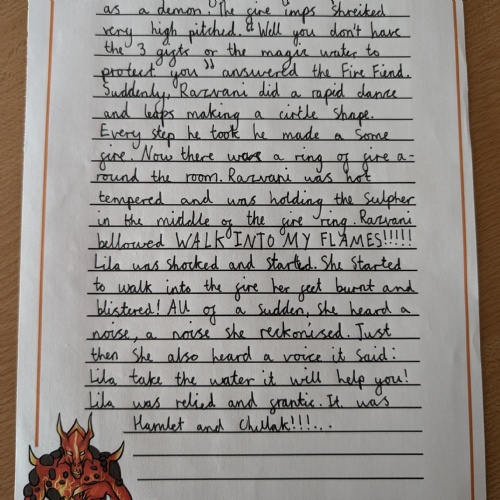 as a demon. The fire imps shreiked
very high pitched. "Well you don't have
the 3 gifts or the magic water to
protect you" answered the Fire Fiend.
Suddenly, Razvani did a rapid dance
and leaps making a cirtle shape.
Every step he took he made a some
fire. Now there was a ring of fire a-
round the room. Razvani was hot
tempered and was holding the Sulpher
in the middle of the fire ring. Razvani
bellowed WALK INTO MY FLAMES!!!!!
Lila was shocked and started. She started
to walk into the fire her feet burnt and
blistered! All of a sudden, she heard a
noise, a noise she reckonised. Just
then she also heard a voice it said:
Lila take the water it will help you!
Lila was relied and frantic. It was
Hamlet and Chulak!!!...